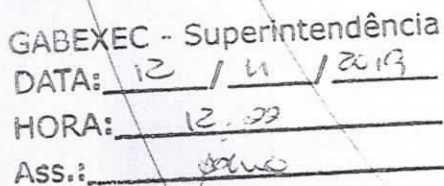 GABEXEC - Superintendência
DATA: 12 / 11 / 2019
HORA: 12
Ass.: